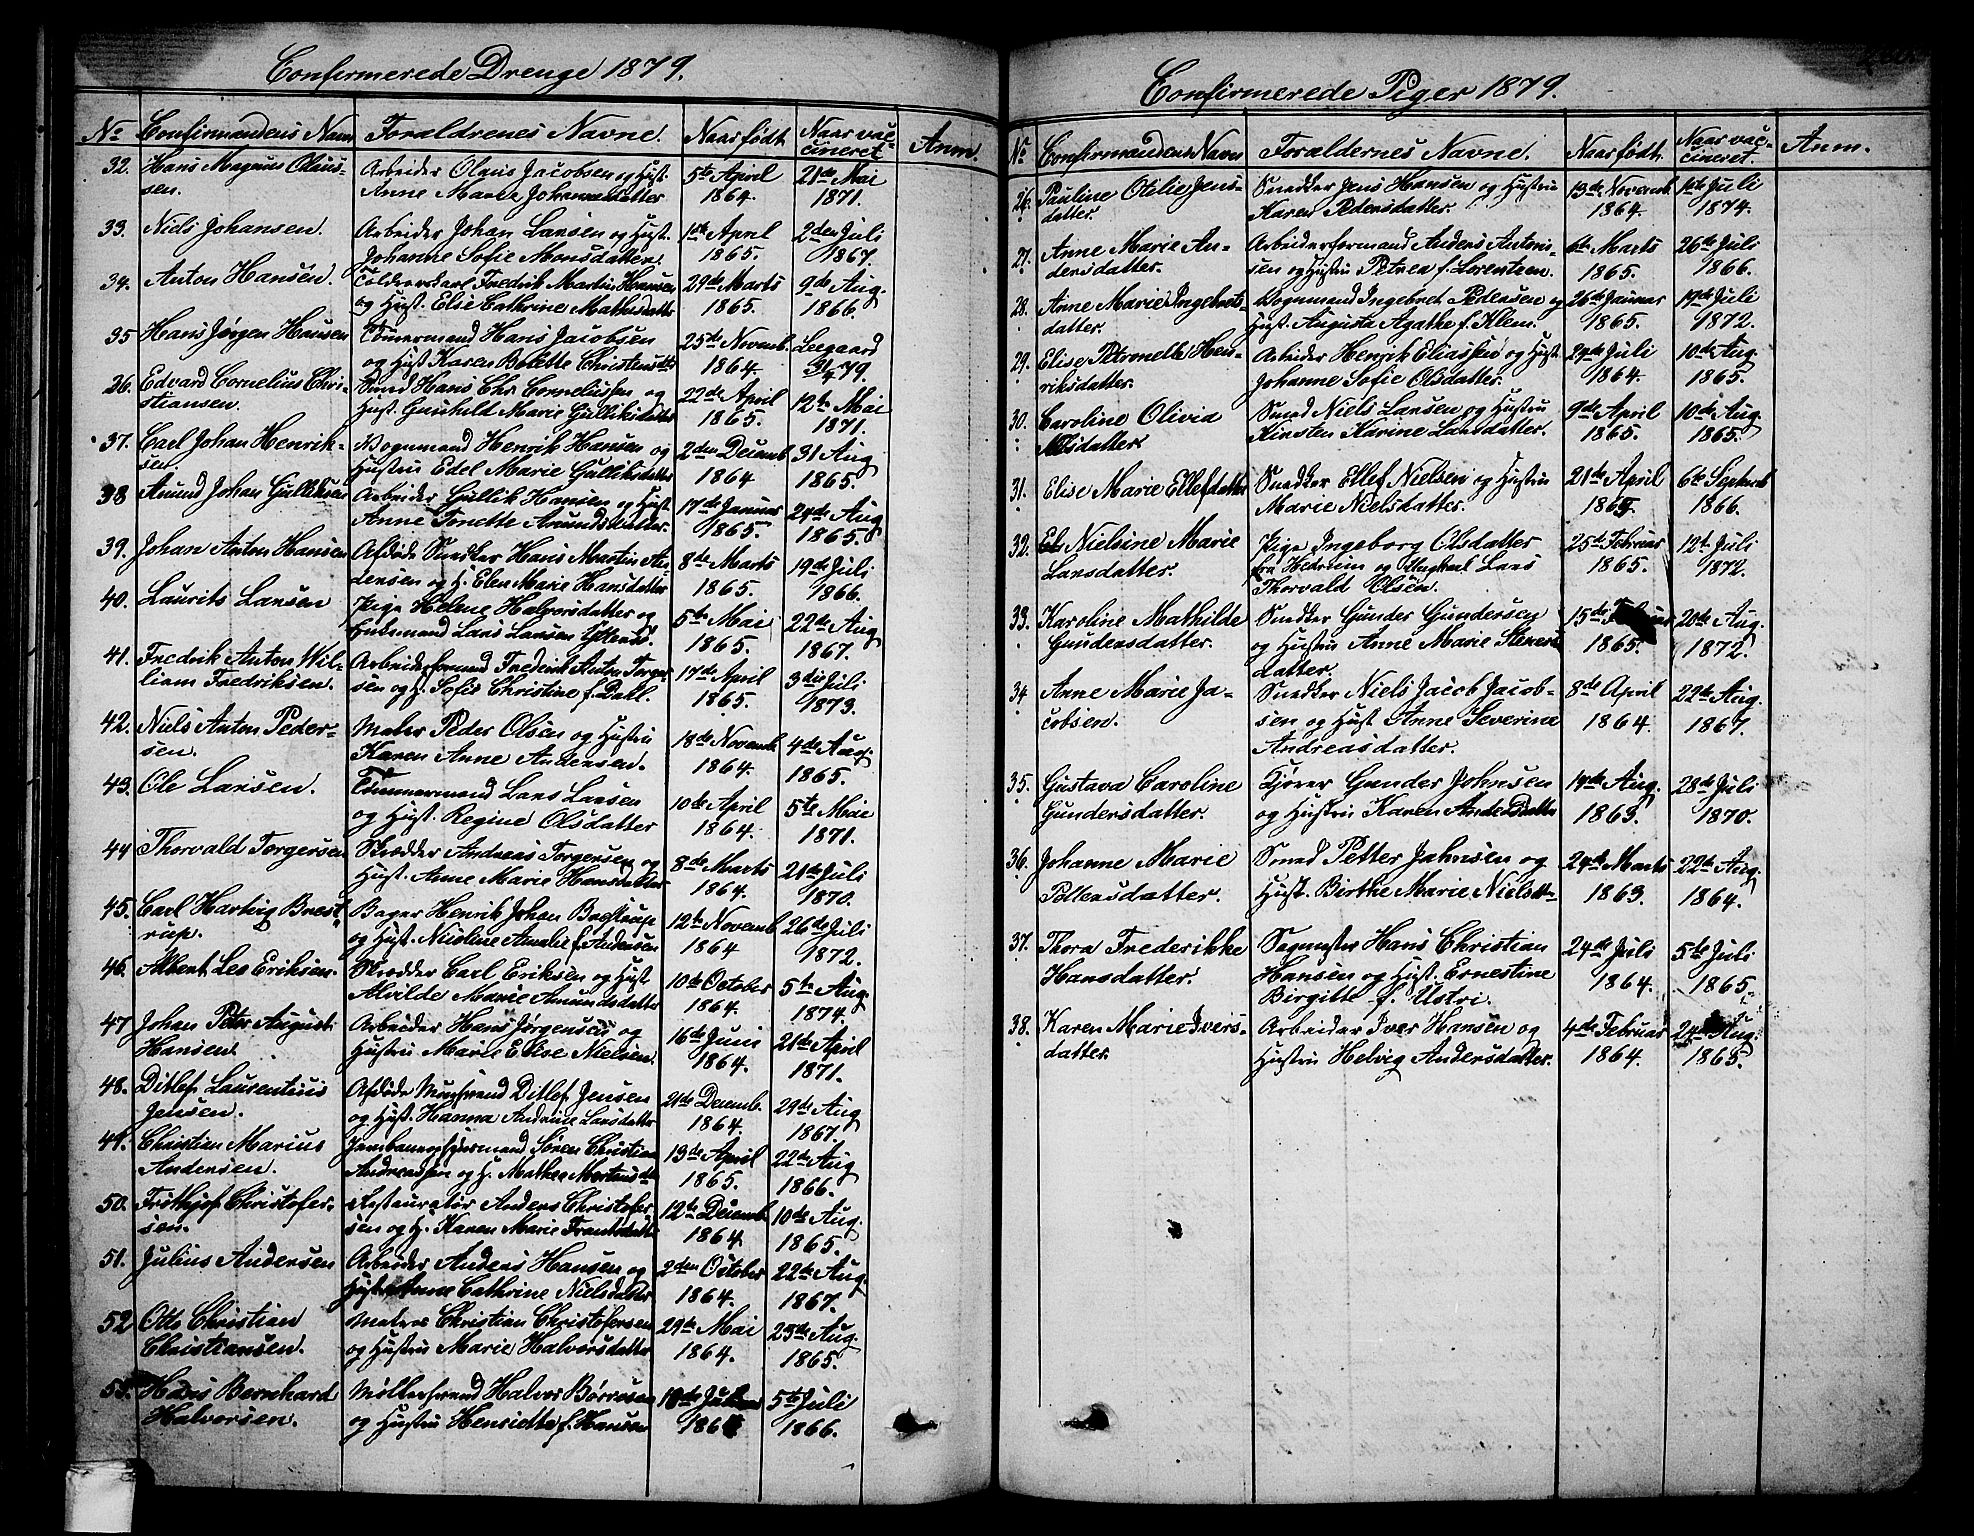 Confirmerede Drenge 1879.
No Confirmandens Navn Forældrenes Navne. Naar født Naar vaccineret Anm.
32. Hans Magnus Olaus- Arbeider Olaus Jacobsen og Hust. 5te April 21de Mai
sen. Anne Marie Johannesdatter 1864. 1871.
33. Niels Johansen. Arbeider Johan Larsen og Hust. 1ste April 2den Juli
Johanne Sofie Monsdatter. 1865. 1867.
34. Anton Hansen. Fredrik Martin Hansen 29de Marts 9de Aug.
og Hust. Elise Cathrine Mathisdatter 1865. 1866.
35 Hans Jørgen Hansen Tømmermand Hans Jacobsen 25de Novemb. Leegaard
og Hust. Karen Bolette 1864. 3/4 79.
26. Edvard Cornelius Chri- Smed Hans Chr Corneliussen og 22de April 12te Mai
stiansen. Hust. Gunhild Marie Gulliksdatter 1865. 1871.
37. Carl Johan Henrik- Vognmand Henrik Hansen og 2den Decemb 31 Aug
sen. Hustru Edel Marie Gulliksdatter 1864 1865.
38 Amund Johan Gulliksen Arbeider Gullik Hansen og Hust. 17de Januar 24de Aug
Anne Tonette Amundsdatter. 1865. 1865.
39. Johan Anton Hansen Afdøde Snedker Hans Martin An- 8de Marts 19de Juli
dersen og H. Elen Marie Hansdatter 1865. 1866.
40. Laurits Larsen Pige Helene Halvorsdatter og 5te Mai 22de Aug
Lars Larsen 1865. 1867.
41. Fredrik Anton Wil- Arbeidsformand Frederik Anton Torger 17de April 3die Juli
liam Fredriksen. sen og H. Sofie Christine f. Dahl. 1865. 1873.
42. Niels Anton Peder- Maler Peder Olsen og Hustru 18de Novemb. 4de Aug.
sen. Karen Anne Andersen. 1864. 1865.
43. Ole Larsen. Tømmermand Lars Larsen 10de April 5te Mai
og Hust. Regine Olsdatter 1864. 1871.
44 Thorvald Torgersen Skrædder Andreas Torgersen og 8de Marts 21de Juli
Hust. Anne Marie Hansdatter 1864. 1870.
45. Carl Hartvig Brest Bager Henrik Johan Brestrup 12te Novemb 26de Juli
rup. og Hust. Nicoline Amalie f. Andersen 1864 1872.
46. Albert Leo Eriksen. Skrædder Carl Eriksen og Hust. 10de October 5te Aug.
Alvilde Marie Amundsdatter 1864. 1874.
47 Johan Peter August Arbeider Hans Jørgensen og 16de Juni 21de April
Hansen. Hustru Marie Elise Nielsen. 1864. 1871.
48. Ditlef Laurentius Afdøde Ditlef Jensen 21de Decemb. 29de Aug
Jensen. og Hust. Hanna Andrine Larsdatter 1864. 1867.
49. Christian Marius Søren Christian 13de April 22de Aug
Andersen. Andreassen og H. Mathea 1865. 1866.
50. Frithjof Christofer- Restauratør Anders Christofer 12te Decemb. 10de Aug.
sen. sen og H. Karen Marie Frantsdatter 1864. 1865.
51. Julius Andersen Arbeider Anders Hansen og 2den October 22de Aug.
Hustru Anne Cathrine Nielsdatter 1864. 1867.
52. Otto Christian Christian Christofersen 29de Mai 23de Aug.
Christiansen. og Hustru Marie Halvorsdatter 1864. 1865.
53. Hans Bernhard Møllersvend Halvor 5te Juli
Halvorsen. og Hustru Henriette f. Hansen 1864 1866.
Confirmerede Piger 1879.
No Confirmandens Navn Foreldernes Navne. Naar født. Naar vaccineret. Anm.
26. Pauline Otilie Jens- Snedker Jens Hansen og Hustru 13de Novemb. 1ste Juli
datter. Karen Pedersdatter. 1864. 1874.
27. Anne Marie An- Arbeiderformand Anders Anton- 6te Marts 26de Juli
dersdatter. sen og Hustru Petrea f. Lorentzen. 1865. 1866.
28. Anne Marie Ingebrets- Vognmand Ingebret Pedersen og 26de Januar 19de Juli
datter. Hust. Augusta Agathe f. Klem. 1865. 1872.
29. Elise Petronelle Hen- Arbeider Henrik Eliassen og Hust 29de Juli 10de Aug.
riksdatter. Johanne Sofie Olsdatter. 1864. 1865.
30. Caroline Olivia Smed Niels Larsen og Hustru 9de April 10de Aug.
Nilsdatter. Kirsten Karine Larsdatter. 1865. 1865.
31. Elise Marie Ellefsdatter Snedker Ellef Nielsen og Hustru 21de April 6te Septemb
Marie Nielsdatter. 1865 1866.
32. Nielsine Marie Pige Ingeborg Olsdatter 25de Februar 12te Juli
Larsdatter. fra og Ungkarl Lars 1865. 1872.
Thorvald Olsen.
33. Karoline Mathilde Snedker Gunder Gundersen 15de 20de Aug.
Gundersdatter. og Hustru Anne Marie 1865. 1872.
datter.
34 Anne Marie Ja- Snedker Niels Jacob Jacob- 8de April 22de Aug.
cobsen. sen og Hust. Anne Severine 1864. 1867.
Andreasdatter.
35. Gustava Caroline Kjører Gunder Johnsen 14de Aug. 28de Juli
Gundersdatter. og Hustru Karen 1863. 1870.
36. Johanne Marie Smed Petter Johnsen og 24de Marts 22de Aug.
Pettersdatter. Hust. Birthe Marie 1863. 1864.
37. Thora Frederikke Sagmester Hans Christian 24de Juli 5te Juli
Hansdatter. Hansen og Hust. Ernestine 1864. 1865.
Birgitte f. Ustri.
38. Karen Marie Ivers- Arbeider Iver Hansen og 4de Februar 24de Aug.
datter. Hustru Helvig Andersdatter. 1864. 1865.